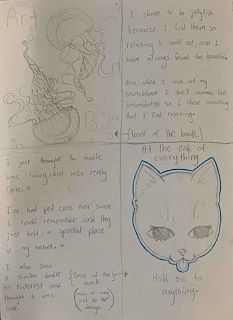 Art
I chose to do jellyfish
because I find them so
relaxing to
and I
have always found the beautiful.
Also when I look at my
sketchbook I don't wanna feel
intimidated so I chose something
that I find relaxing.
(front of the book.)
I just thought the doodle
was funny, but also really
cute.
I've had pet cats ever since
I could remember and they
just hold a special place
in my heart.
I also saw
a similar doodle
on Pinterest and
thought it was
cute.
(Back of the book.)
At the end of
everything
Hold on to
anything.